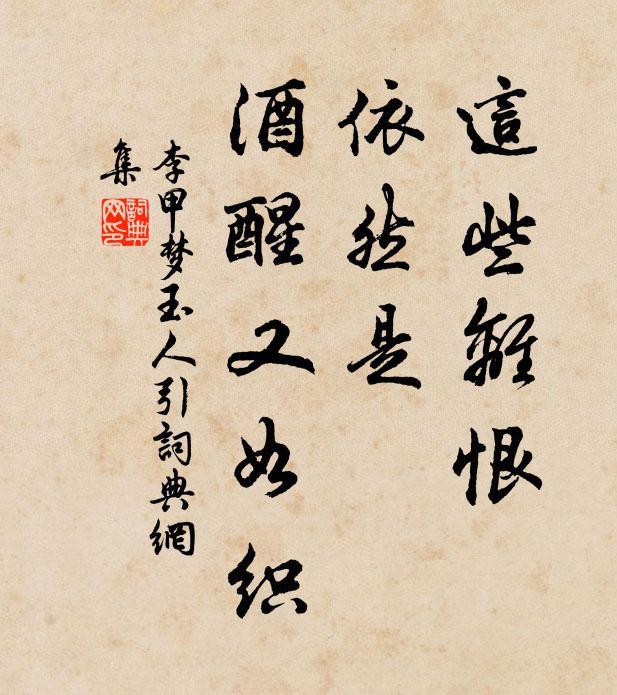 這些離恨
依然是
酒醒又如织
李甲梦玉人引詞典網
集
詞典
网印